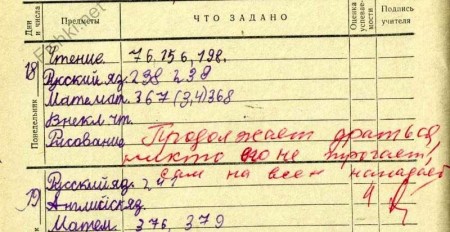 Дни и числа Предметы ЧТО ЗАДАНО Оценка успеваемости Подпись учителя
Понедельник
18
Чтение 76. 156, 198.
Русский яз. 238 239
Математ. 367 (3,4) 368
Внекл. чт.
Рисование Продолжает драться
никто его не трогает,
сам на всех нападает
19
Русский яз. 241 4
Английск. яз.
Матем. 376, 379
Fishki.net